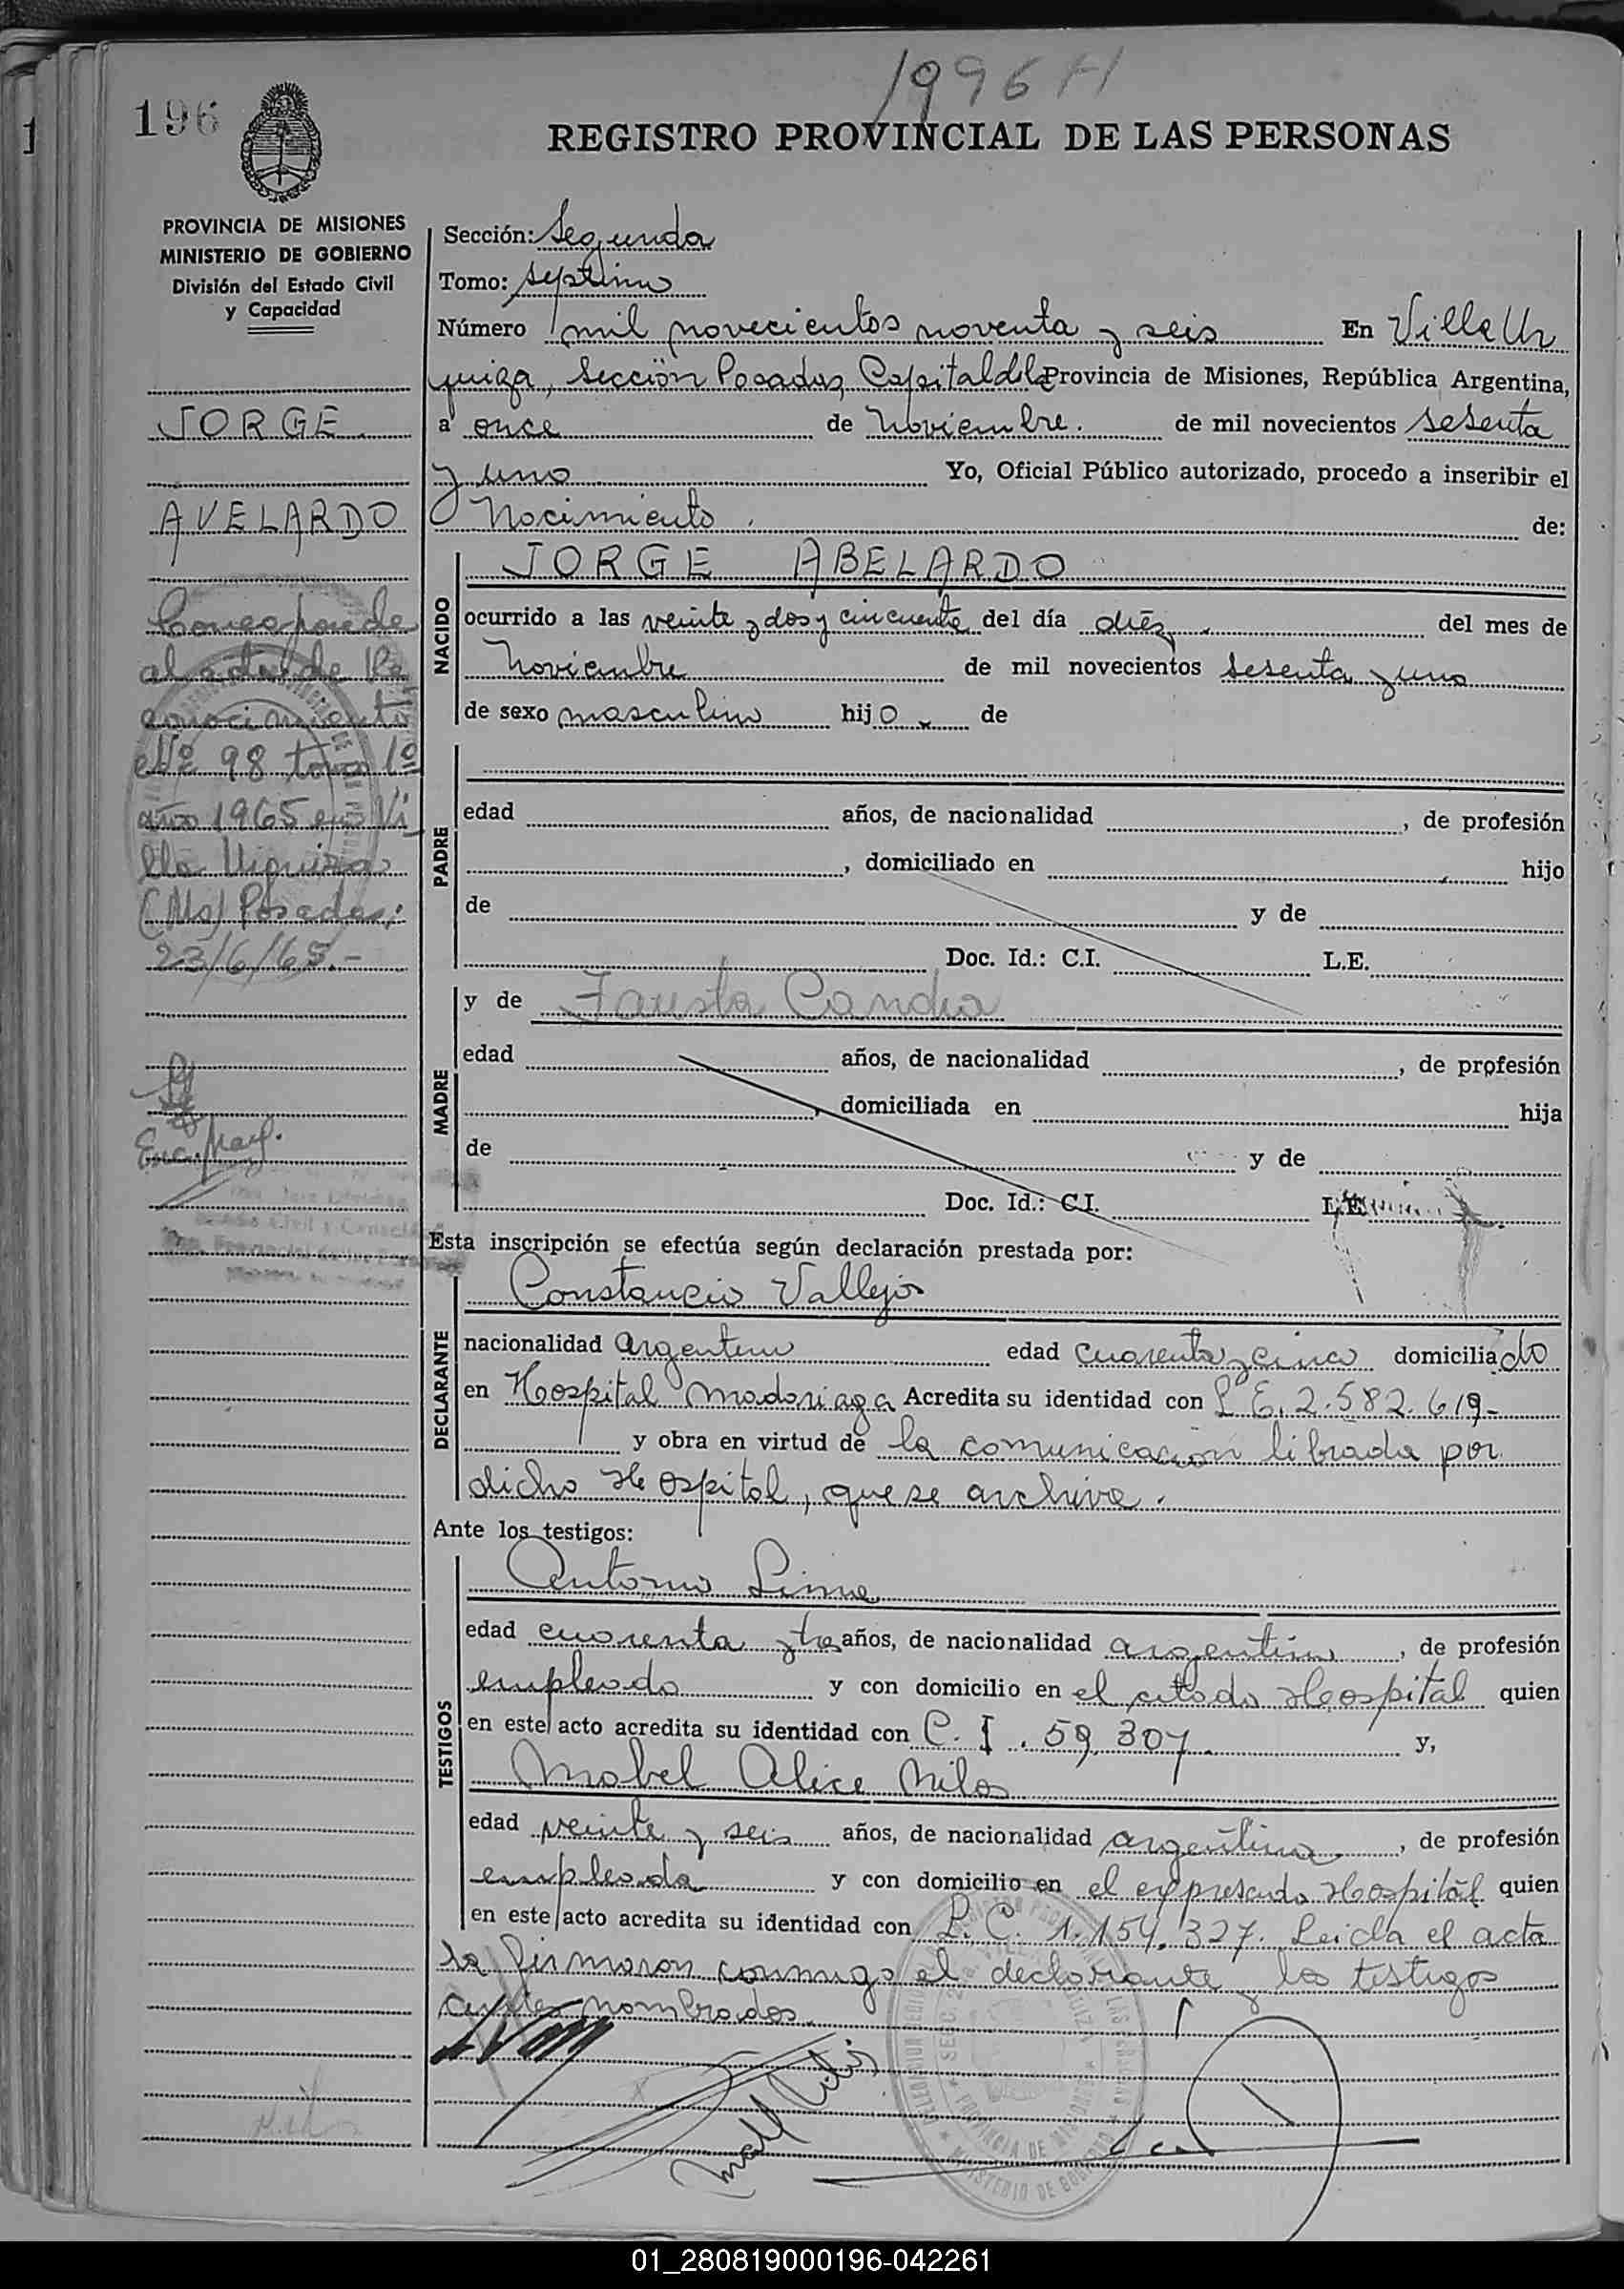 1996 H
196
REGISTRO PROVINCIAL DE LAS PERSONAS
PROVINCIA DE MISIONES
MINISTERIO DE GOBIERNO
División del Estado Civil
y Capacidad
JORGE
AVELARDO
Corresponde
al acta de Re
conocimiento
Nº 98 tomo 1º
año 1965 en Vi
lla Urquiza
(Ms) Posadas;
23/6/65.-
Sección: Segunda
Tomo: septimo
Número mil novecientos noventa y seis En Villa Ur
quiza, Sección Posadas, Capital de la Provincia de Misiones, República Argentina,
a once de Noviembre. de mil novecientos sesenta
y uno Yo, Oficial Público autorizado, procedo a inseribir el
Nacimiento. de:
NACIDO
JORGE ABELARDO
ocurrido a las veinte y dos y cincuenta del día diéz del mes de
Noviembre de mil novecientos sesenta y uno
de sexo masculino hijo de
PADRE
edad años, de nacionalidad , de profesión
, domiciliado en hijo
de y de
Doc. Id.: C.I. L.E.
MADRE
y de Fausta Candia
edad años, de nacionalidad , de profesión
, domiciliada en hija
de y de
Doc. Id.: C.I. L.E.
Esta inscripción se efectúa según declaración prestada por:
DECLARANTE
Constancio Vallejos
nacionalidad argentino edad cuarenta y cinco domiciliado
en Hospital Madariaga Acredita su identidad con L.E. 2.582.619-
y obra en virtud de la comunicación librada por
dicho Hospital, que se archiva.
Ante los testigos:
TESTIGOS
Antonio
edad cuarenta y tres años, de nacionalidad argentino, de profesión
empleado y con domicilio en el citado Hospital quien
en este acto acredita su identidad con C. I. 59.307. y,
Mabel Alice
edad veinte y seis años, de nacionalidad argentina, de profesión
empleada y con domicilio en el expresado Hospital quien
en este acto acredita su identidad con L.C. 1.154.327. Leida el acta
la firmaron conmigo el declarante y los testigos
nombrados.
01_280819000196-042261